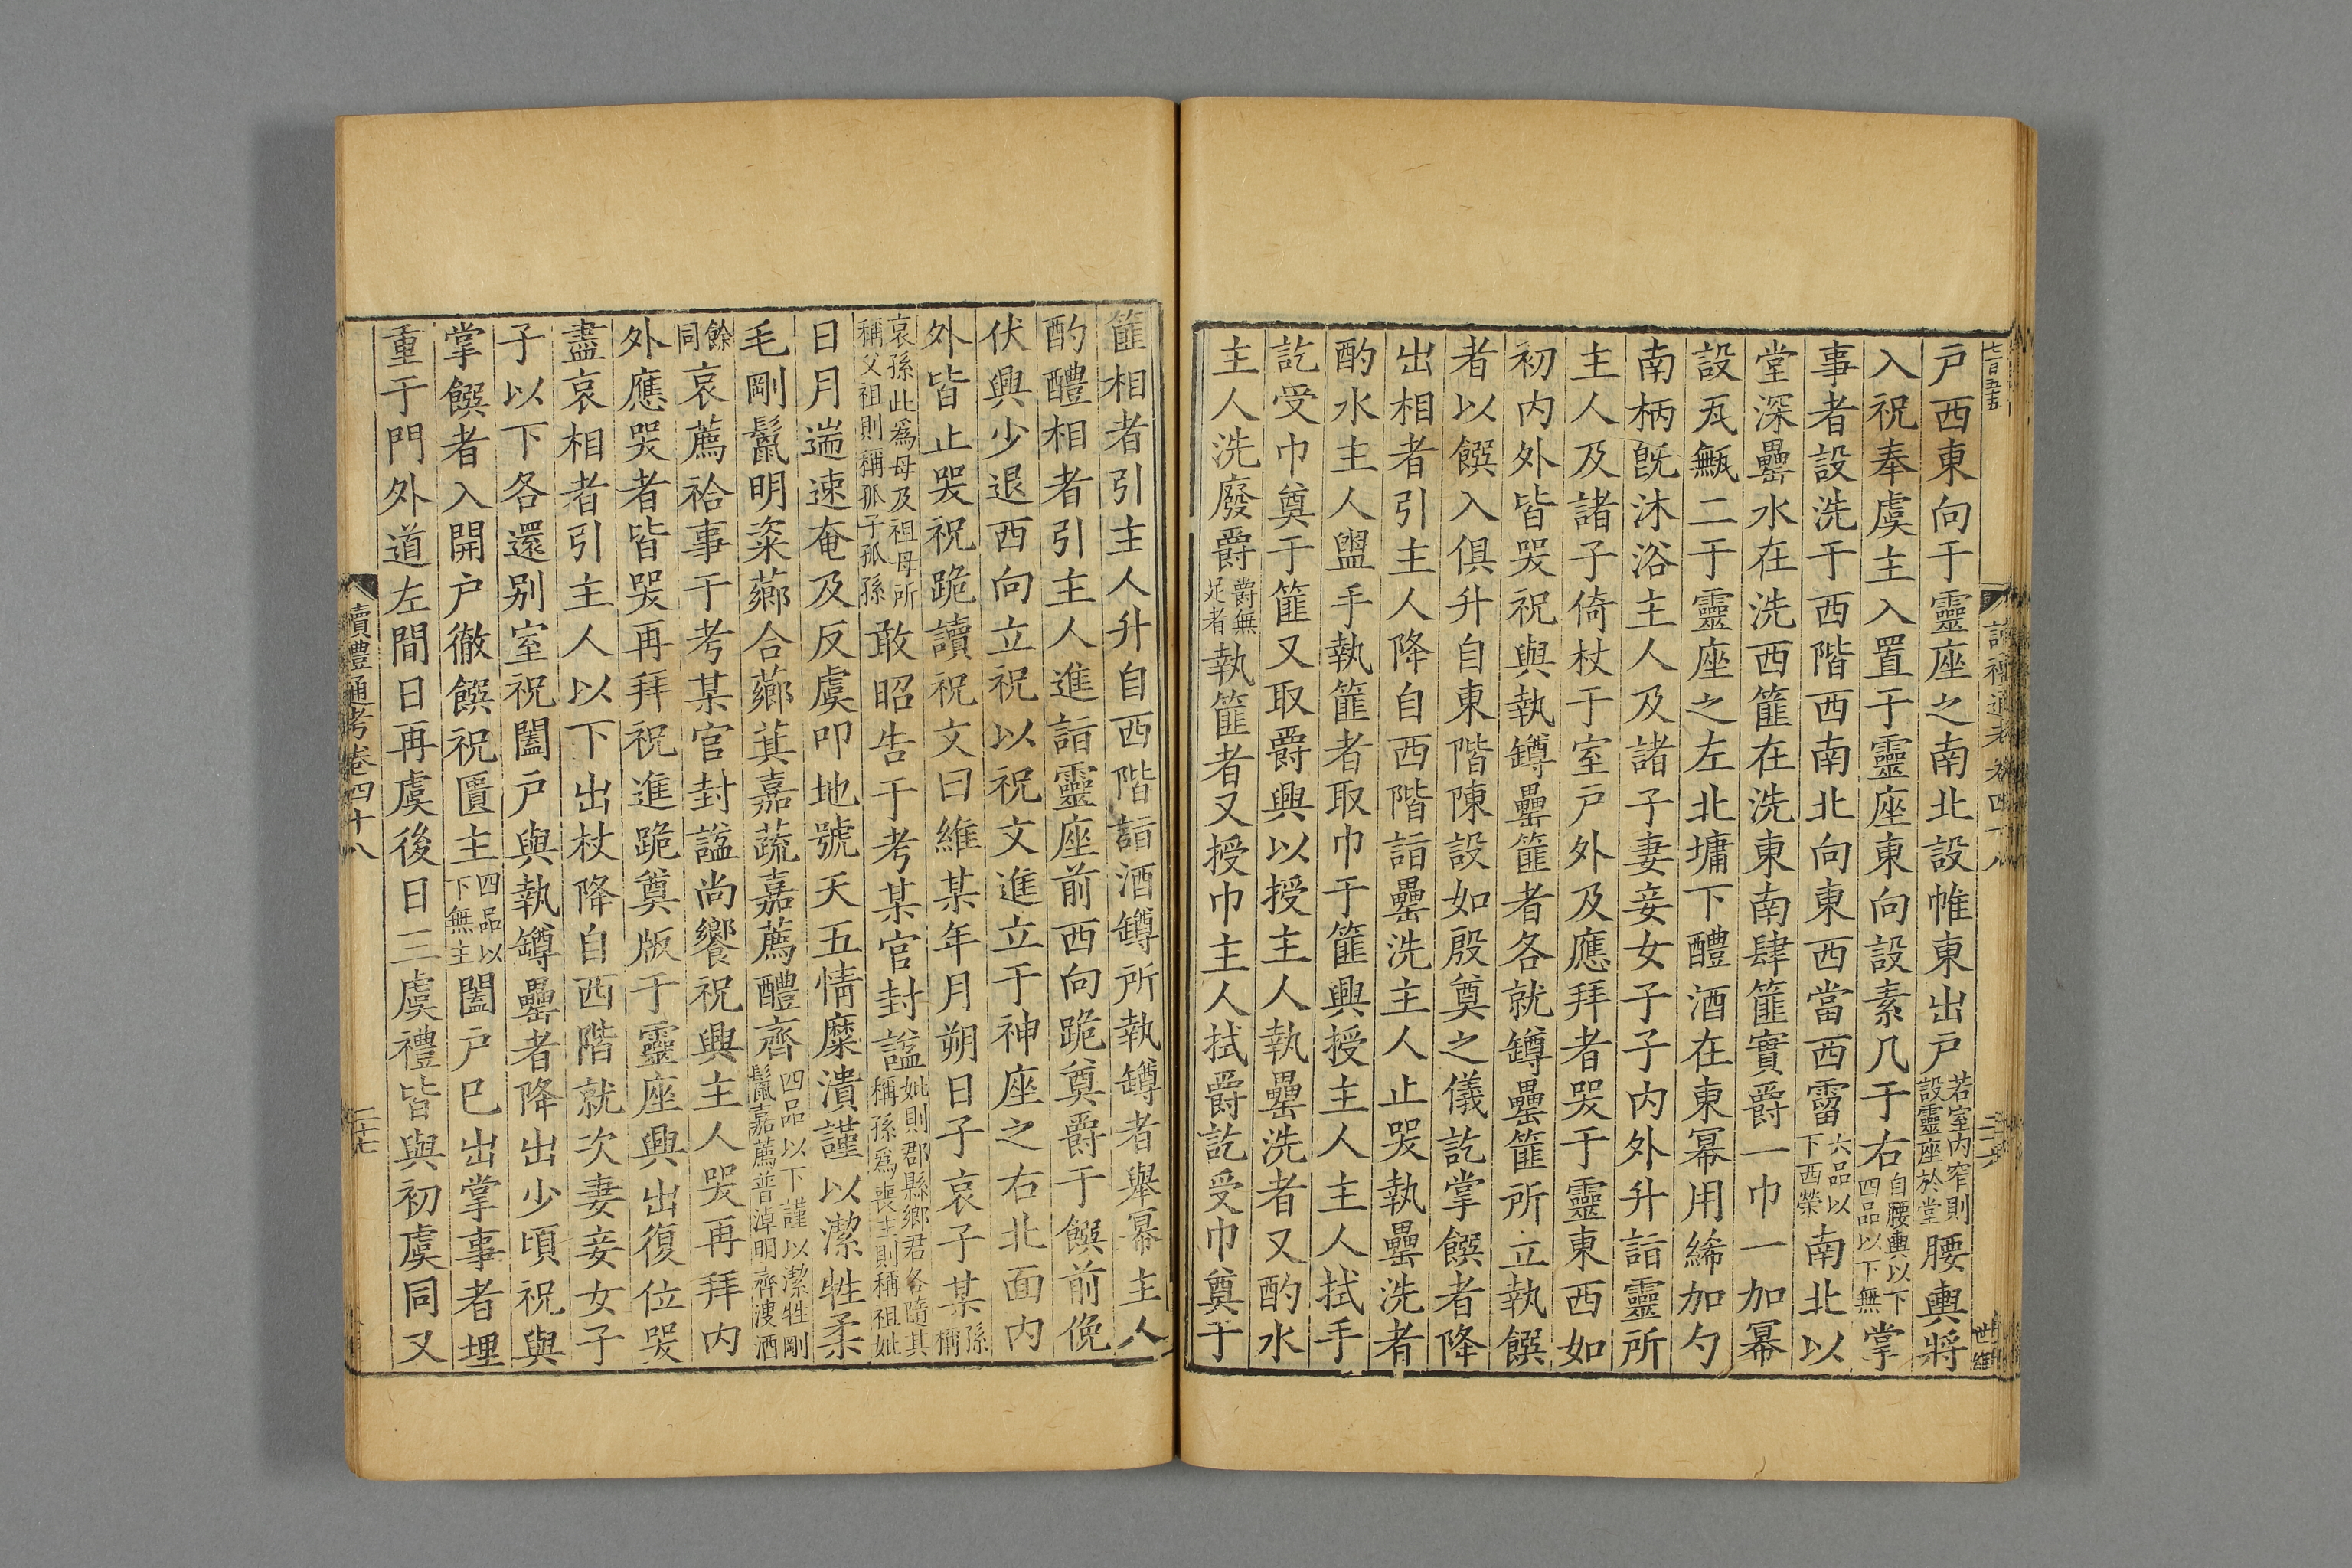 七百五五
讀禮通考卷四十八
二十六
戸西東向于靈座之南北設帷東出戸若室内窄則設靈座於堂腰輿將
入祝奉虞主入置于靈座東向設素几于右自腰輿以下四品以下無掌
事者設洗于西階西南北向東西當西霤六品以下西榮南北以
堂深罍水在洗西篚在洗東南肆篚實爵一巾一加冪
設瓦甒二于靈座之左北墉下醴酒在東冪用絺加勺
南柄旣沐浴主人及諸子妻妾女子子内外升詣靈所
主人及諸子倚杖于室戸外及應拜者哭于靈東西如
初内外皆哭祝與執罇罍篚者各就罇罍篚所立執饌
者以饌入俱升自東階陳設如殷奠之儀訖掌饌者降
出相者引主人降自西階詣罍洗主人止哭執罍洗者
酌水主人盥手執篚者取巾于篚興授主人主人拭手
訖受巾奠于篚又取爵興以授主人執罍洗者又酌水
主人洗廢爵爵無足者執篚者又授巾主人拭爵訖受巾奠于
篚相者引主人升自西階詣酒罇所執罇者舉冪主人
酌醴相者引主人進詣靈座前西向跪奠爵于饌前俛
伏興少退西向立祝以祝文進立于神座之右北面内
外皆止哭祝跪讀祝文曰維某年月朔日子哀子某孫稱
哀孫此爲母及祖母所稱父祖則稱孤子孤孫敢昭告于考某官封諡妣則郡縣鄉君各隨其稱孫爲喪主則稱祖妣
日月遄速奄及反虞叩地號天五情糜潰謹以潔牲柔
毛剛鬣明粢薌合薌萁嘉蔬嘉薦醴齊四品以下謹以潔牲剛鬣嘉薦普淖明齊溲酒
餘同哀薦祫事于考某官封諡尚饗祝興主人哭再拜内
外應哭者皆哭再拜祝進跪奠版于靈座興出復位哭
盡哀相者引主人以下出杖降自西階就次妻妾女子
子以下各還别室祝闔戸與執罇罍者降出少頃祝與
掌饌者入開戸徹饌祝匱主四品以下無主闔戸巳出掌事者埋
重于門外道左間日再虞後日三虞禮皆與初虞同又
讀禮通考卷四十八
二十七